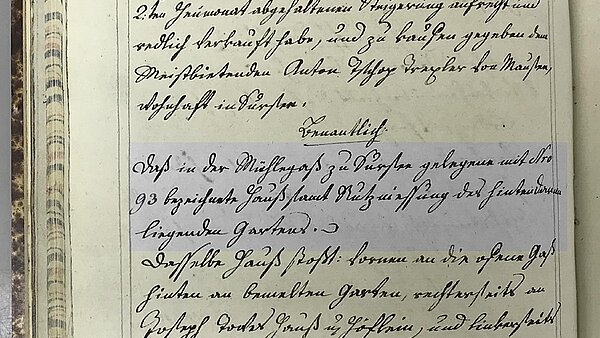 2:ten Heumonat abgehaltenen Steigerung aufrecht und
redlich verkauft habe, und zu kaufen gegeben dem
Meistbietenden Anton Tschop Trexler von Maustern,
wohnhaft in Surse.
Benantlich:
Daß in der Mühlegaß zu Sursee gelegene mit Nro
93 bezeichnete Hauß samt Nutzniessung des hinten daran
liegenden Gartens.
Dasselbe Hauß stoßt: vornen an die ofene Gaß
hinten an bemelten Garten, rechterseits an
Joseph Hauß u Höflein, und linkerseits